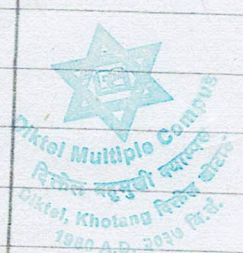 Diktel Multiple Campus
दिक्तेल बहुमुखी क्याम्पस
Diktel, Khotang दिक्तेल खोटाङ
1980 A.D. २०३७ वि.सं.